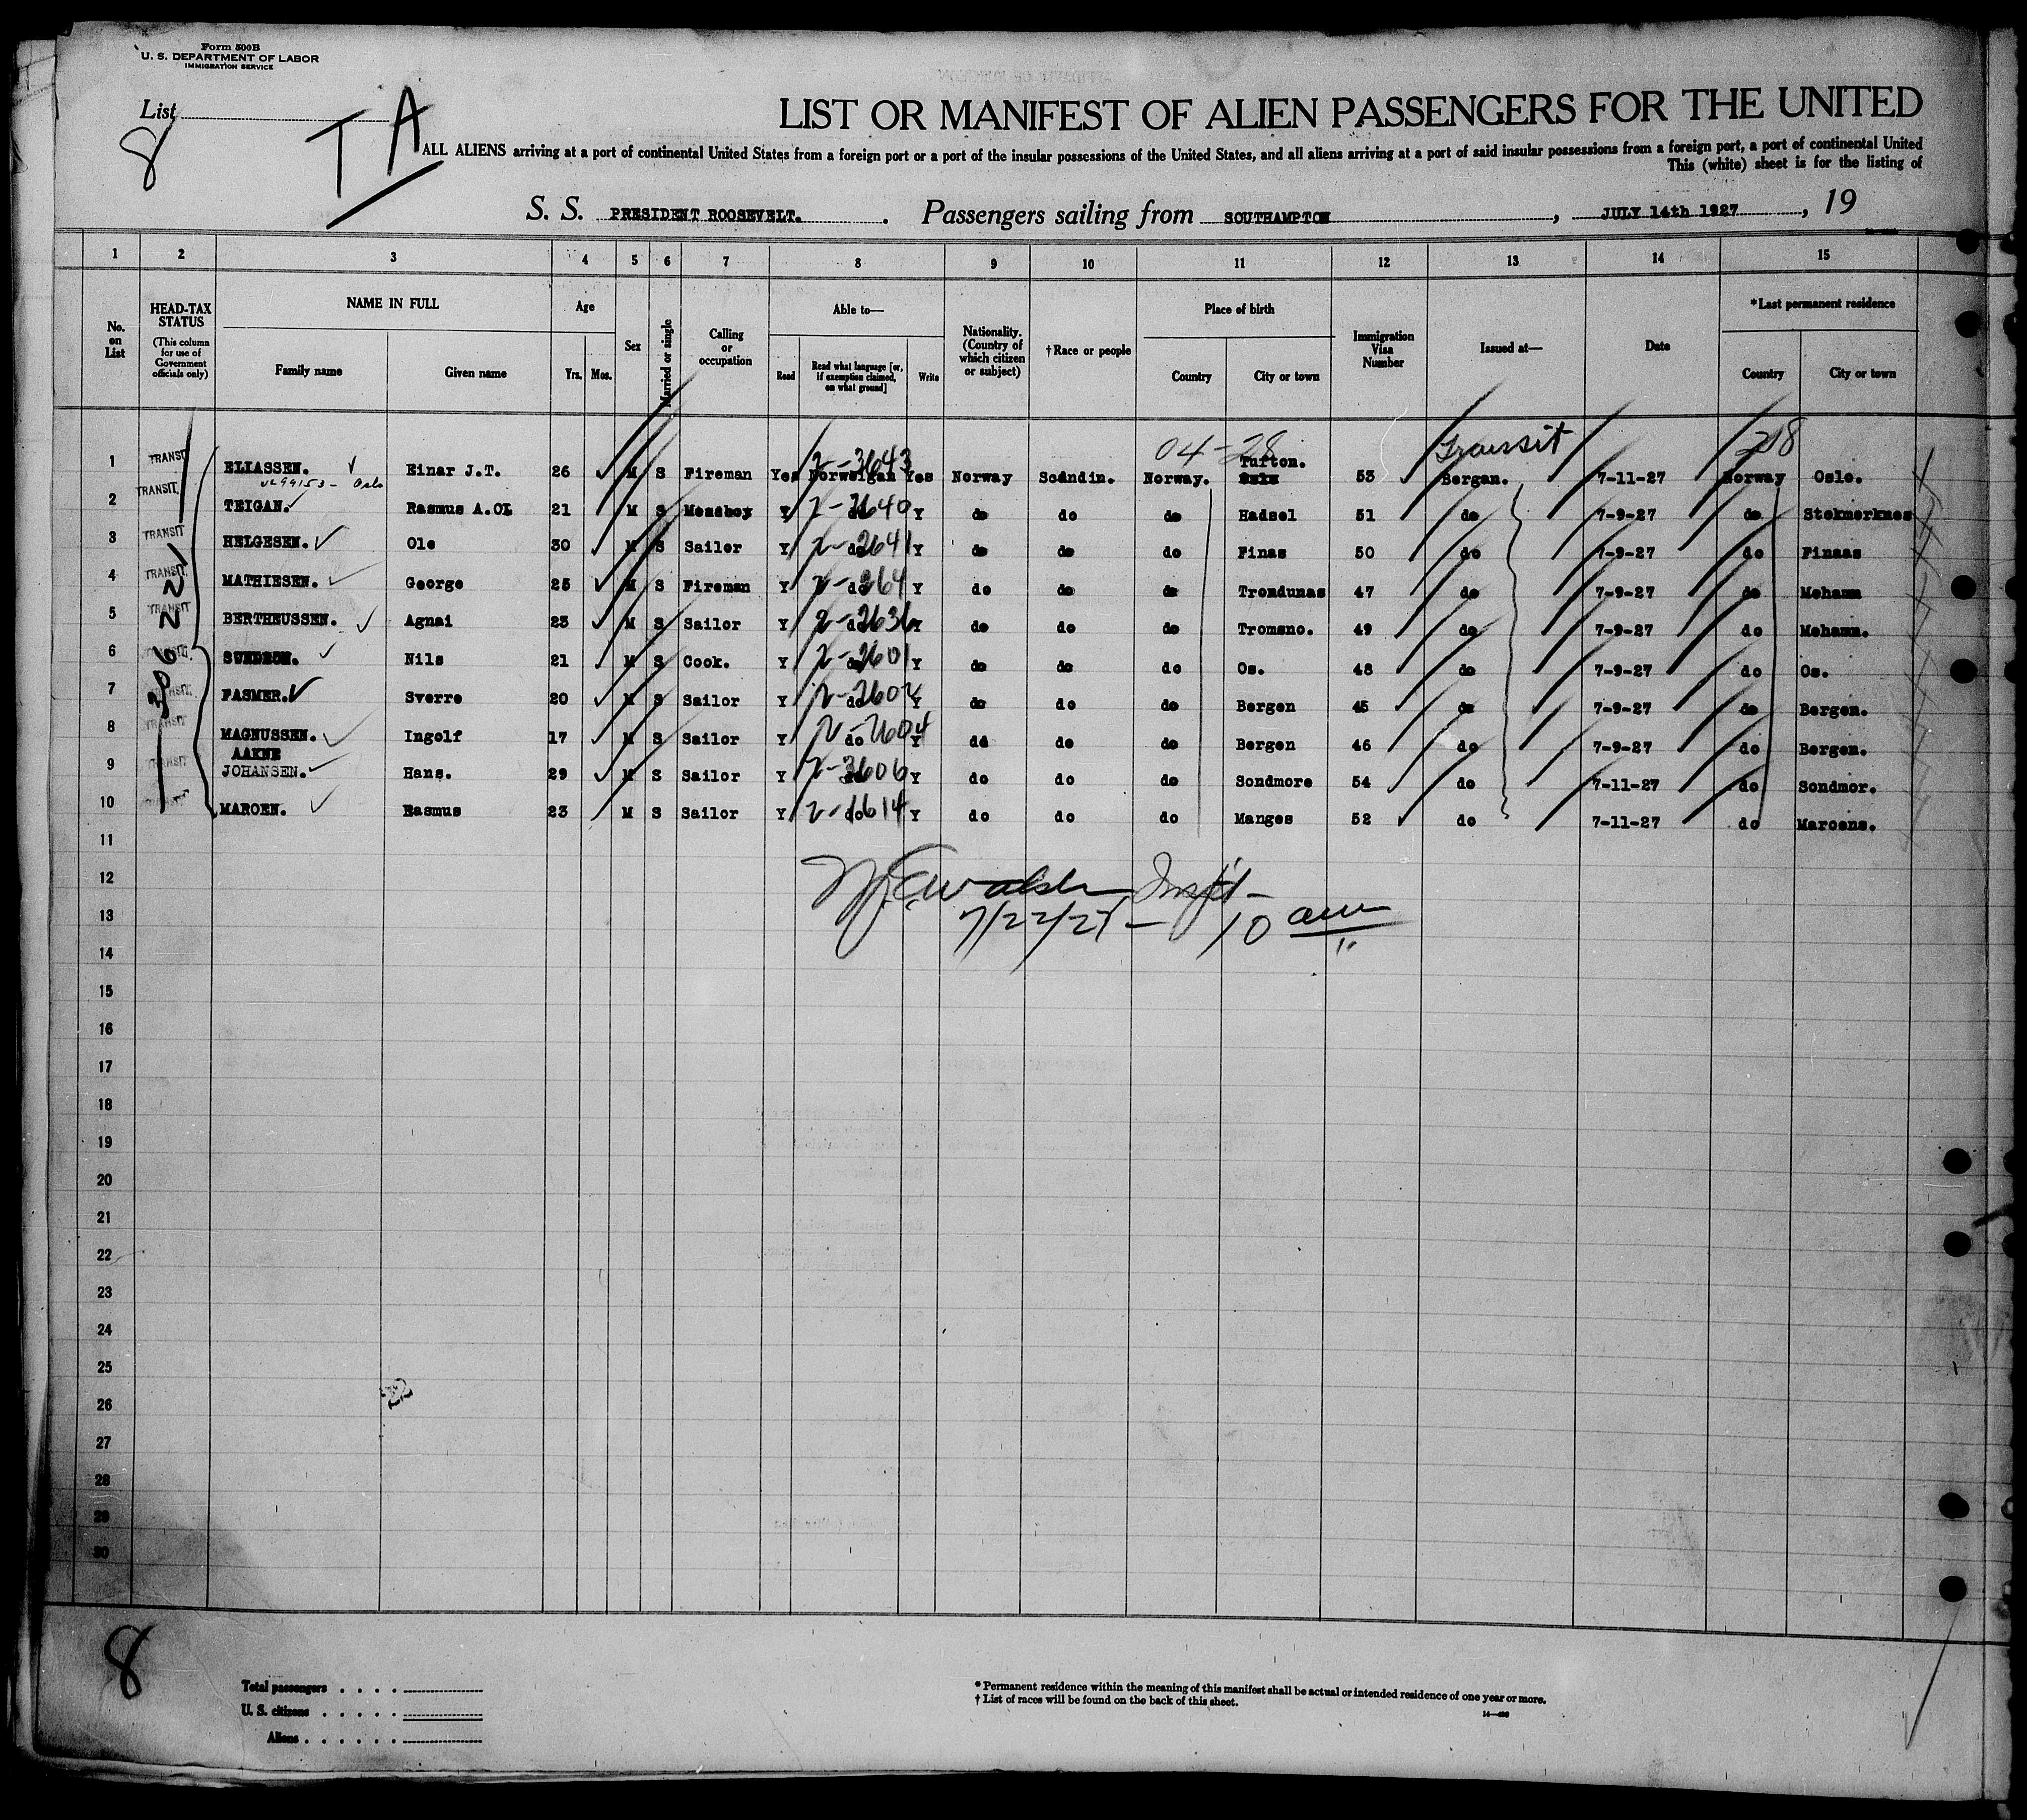 Form 500B
U. S. DEPARTMENT OF LABOR
IMMIGRATION SERVICE
List
8
T A
LIST OR MANIFEST OF ALIEN PASSENGERS FOR THE UNITED
ALL ALIENS arriving at a port of continental United States from a foreign port or a port of the insular possessions of the United States, and all aliens arriving at a port of said insular possessions from a foreign port, a port of continental United
This (white) sheet is for the listing of
S. S. PRESIDENT ROOSEVELT. Passengers sailing from SOUTHAMPTON, JULY 14th 1927, 19
1 2 3 4 5 6 7 8 9 10 11 12 13 14 15
No. on List
HEAD-TAX STATUS
(This column for use of Government officials only)
NAME IN FULL
Family name Given name
Age
Yrs. Mos.
Sex
Married or single
Calling or occupation
Able to—
Read
Read what language [or, if exemption claimed, on what ground]
Write
Nationality. (Country of which citizen or subject)
†Race or people
Place of birth
Country City or town
Immigration Visa Number
Issued at—
Date
*Last permanent residence
Country City or town
04-28 Transit
Tufton.
1 TRANSIT ELIASSEN. Einar J.T. 26 M S Fireman Yes Norweigan 2-3643 Yes Norway Scandin. Norway. 53 Bergen. 7-11-27 Norway Oslo.
Oslo
2 TRANSIT TEIGAN. Rasmus A.OL 21 M S Messboy Y Y do do do Hadsel 51 do 7-9-27 do Stokmerknes
3 TRANSIT HELGESEN. Ole 30 M S Sailor Y do Y do do do Finas 50 do 7-9-27 do Finaas
4 TRANSIT MATHIESEN. George 25 M S Fireman Y do Y do do do Trondunas 47 do 7-9-27 do Mehamn
5 TRANSIT BERTHEUSSEN. Agnai 23 M S Sailor Y do Y do do do Tromsno. 49 do 7-9-27 do Mehamn.
6 Nils 21 M S Cook. Y Y do do do Os. 48 do 7-9-27 do Os.
7 TRANSIT FASMER. Sverre 20 M S Sailor Y do Y do do do Bergen 45 do 7-9-27 do Bergen.
8 TRANSIT MAGNUSSEN. Ingolf 17 M S Sailor Y do Y do do do Bergen 46 do 7-9-27 do Bergen.
AAKNE
9 TRANSIT JOHANSEN. Hans. 29 M S Sailor Y Y do do do Sondmore 54 do 7-11-27 do Sondmor.
10 TRANSIT MAROEN. Rasmus 23 M S Sailor Y do Y do do do Manges 52 do 7-11-27 do Maroens.
11
12
13
7/22/27 - 10 am
14
15
16
17
18
19
20
21
22
23
24
25
26
27
28
29
30
8
Total passengers
U. S. citizens
Aliens
* Permanent residence within the meaning of this manifest shall be actual or intended residence of one year or more.
† List of races will be found on the back of this sheet.